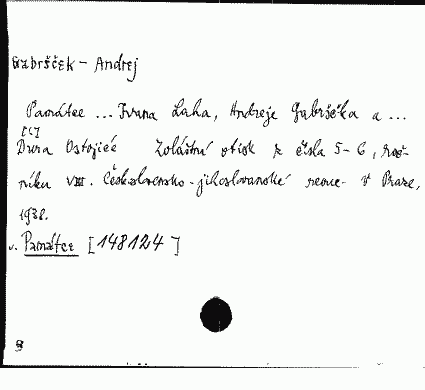 Gabršček - Andrej
Památce ... Ivana Laha, Andreje Gabrščka a ...
[!]
Dura Ostojiće Zvláštní otisk z čísla 5-6, roč-
níku VIII. Československo-jihoslovanské revue - V Praze,
1938.
v. Památce [148124]